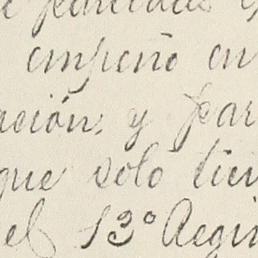 empeño en
ación, y par
que solo tien
el 13º Regi